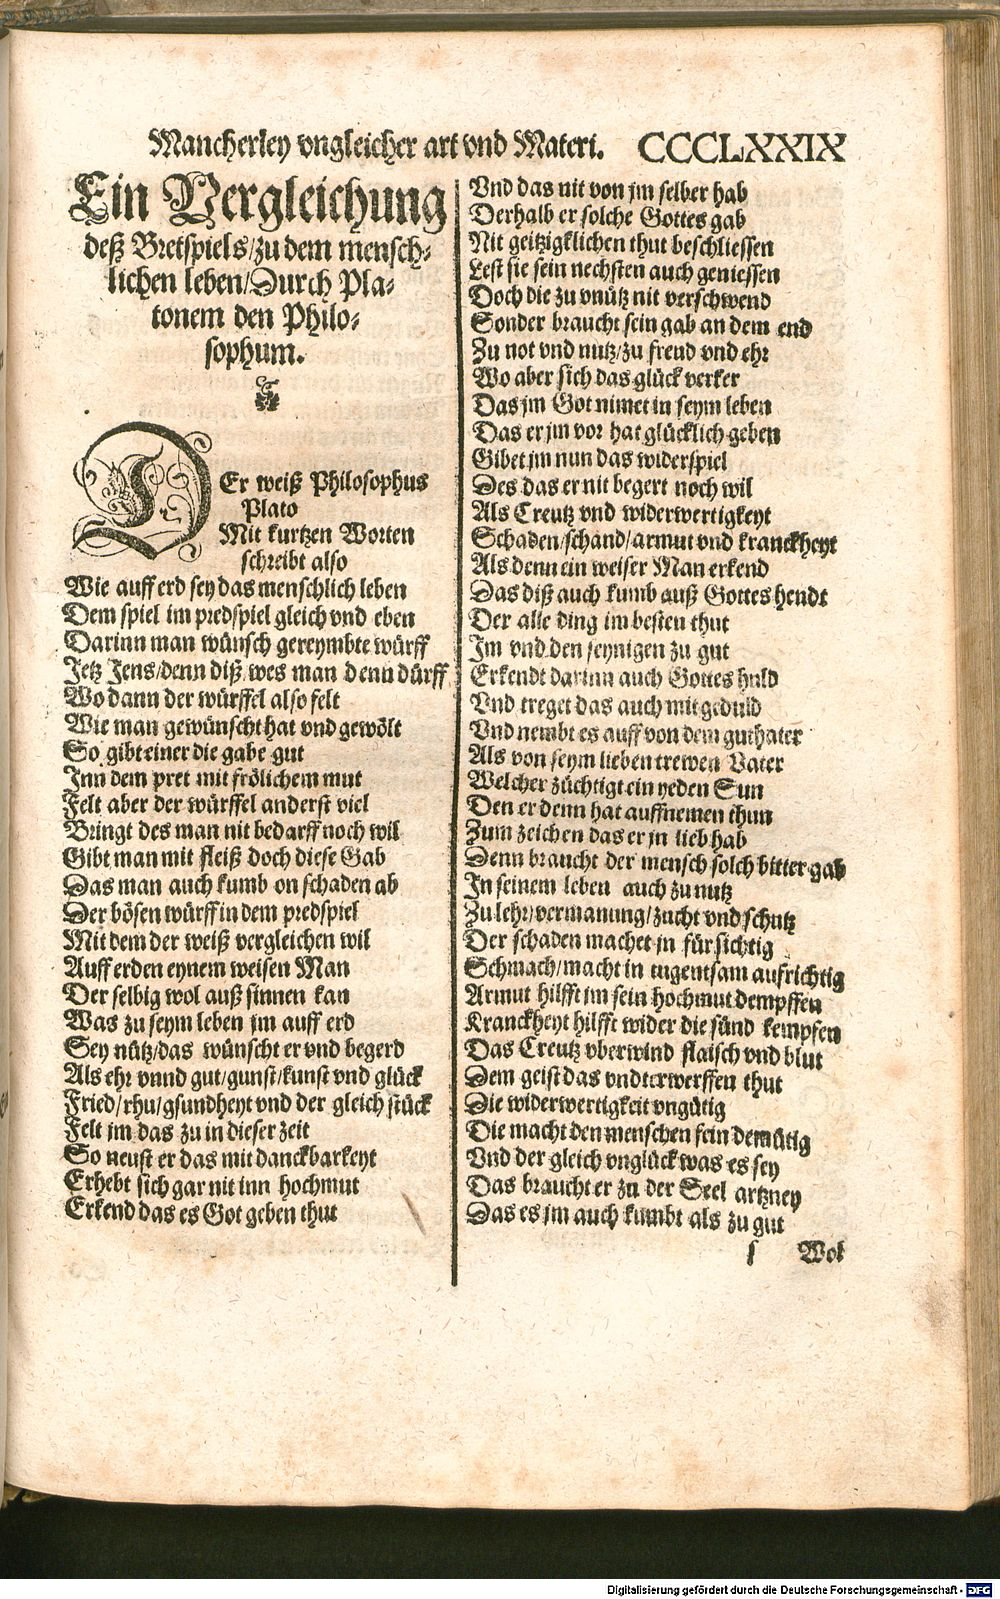 Mancherley vngleicher art vnd Materi. CCCCLXXIX
Ein Vergleichung
deß Bretspiels/zu dem mensch⸗
lichen leben/Durch Pla⸗
tonem den Philo⸗
sophum.
DEr weiß Philosophus
Plato
Mit kurtzen Worten
schreibt also
Wie auff erd sey das menschlich leben
Dem spiel im predspiel gleich vnd eben
Darinn man wünsch gereymbte würff
Jetz Jens/denn diß/wes man denn dürff
Wo dann der würffel also felt
Wie man gewünscht hat vnd gewölt
So gibt einer die gabe gut
Inn dem pret mit frölichem mut
Felt aber der würffel anderst viel
Bringt des man nit bedarff noch wil
Gibt man mit fleiß doch diese Gab
Das man auch kumb on schaden ab
Der bösen würff in dem predspiel
Mit dem der weiß vergleichen wil
Auff erden eynem weisen Man
Der selbig wol auß sinnen kan
Was zu seym leben jm auff erd
Sey nütz/das wünscht er vnd begerd
Als ehr vnnd gut/gunst/kunst vnd glück
Fried/rhu/gsundheyt vnd der gleich stück
Felt jm das zu in dieser zeit
So neust er das mit danckbarkeyt
Erhebt sich gar nit inn hochmut
Erkend das es Got geben thut
Vnd das nit von jm selber hab
Derhalb er solche Gottes gab
Nit geitzigklichen thut beschliessen
Lest sie sein nechsten auch geniessen
Doch die zu vnütz nit verschwend
Sonder braucht sein gab an dem end
Zu not vnd nutz/zu freud vnd ehr
Wo aber sich das glück verker
Das jm Got nimet in seym leben
Das er jm vor hat glücklich geben
Gibet jm nun das widerspiel
Des das er nit begert noch wil
Als Creutz vnd widerwertigkeyt
Schaden/schand/armut vnd kranckheyt
Als denn ein weiser Man erkend
Das diß auch kumb auß Gottes hendt
Der alle ding im besten thut
Im vnd den seynigen zu gut
Erkendt darinn auch Gottes huld
Vnd treget das auch mit geduld
Vnd nembt es auff von dem guthater
Als von seym lieben trewen Vater
Welcher züchtigt ein yeden Sun
Den er denn hat auffnemen thun
Zum zeichen das er jn lieb hab
Denn braucht der mensch solch bitter gab
In seinem leben auch zu nutz
Zu lehr/vermanung/zucht vnd schutz
Der schaden machet jn fürsichtig
Schmach/macht in tugentsam aufrichtig
Armut hilfft jm sein hochmut dempffen
Kranckheyt hilfft wider die sünd kempfen
Das Creutz vberwind flaisch vnd blut
Dem geist das vndterwerffen thut
Die widerwertigkeit vngütig
Die macht den menschen fein demütig
Vnd der gleich vnglück was es sey
Das braucht er zu der Seel artzney
Das es jm auch kumbt als zu gut
Wol
Digitalisierung gefördert durch die Deutsche Forschungsgemeinschaft - DFG